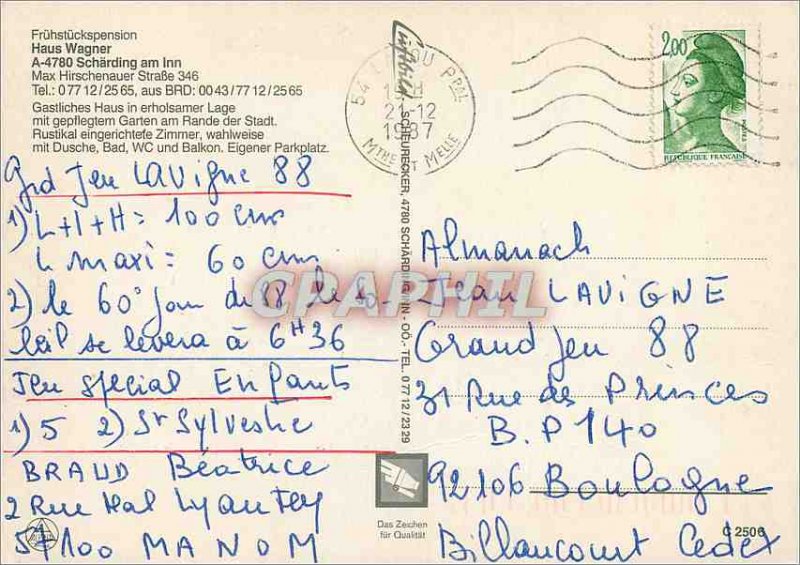 Frühstückspension
Haus Wagner
A-4780 Schärding am Inn
Max Hirschenauer Straße 346
Tel.: 0 77 12 / 25 65, aus BRD: 00 43 / 77 12 / 25 65
Gastliches Haus in erholsamer Lage
mit gepflegtem Garten am Rande der Stadt.
Rustikal eingerichtete Zimmer, wahlweise
mit Dusche, Bad, WC und Balkon. Eigener Parkplatz.
Grd Jeu LAVIGNE 88
1) L+l+H = 100 cms
L maxi = 60 cm
2) le 60° jour du 88, le so-
leil se levera à 6H36
Jeu special Enfants
1) 5 2) St Sylvestre
BRAUD Béatrice
2 Rue Mal Lyautey
57100 MANOM
SCHEURECKER, 4780 SCHÄRDING/INN - OÖ. - TEL. 0 77 12 / 23 29
Das Zeichen
für Qualität
54
21-12
1987
MTHE ET MELLE
2,00
REPUBLIQUE FRANÇAISE
Almanach
Jean LAVIGNE
Grand Jeu 88
31 Rue des Princes
B.P 140
92106 Boulogne
Billancourt Cedex
C 2506
CPAPHIL